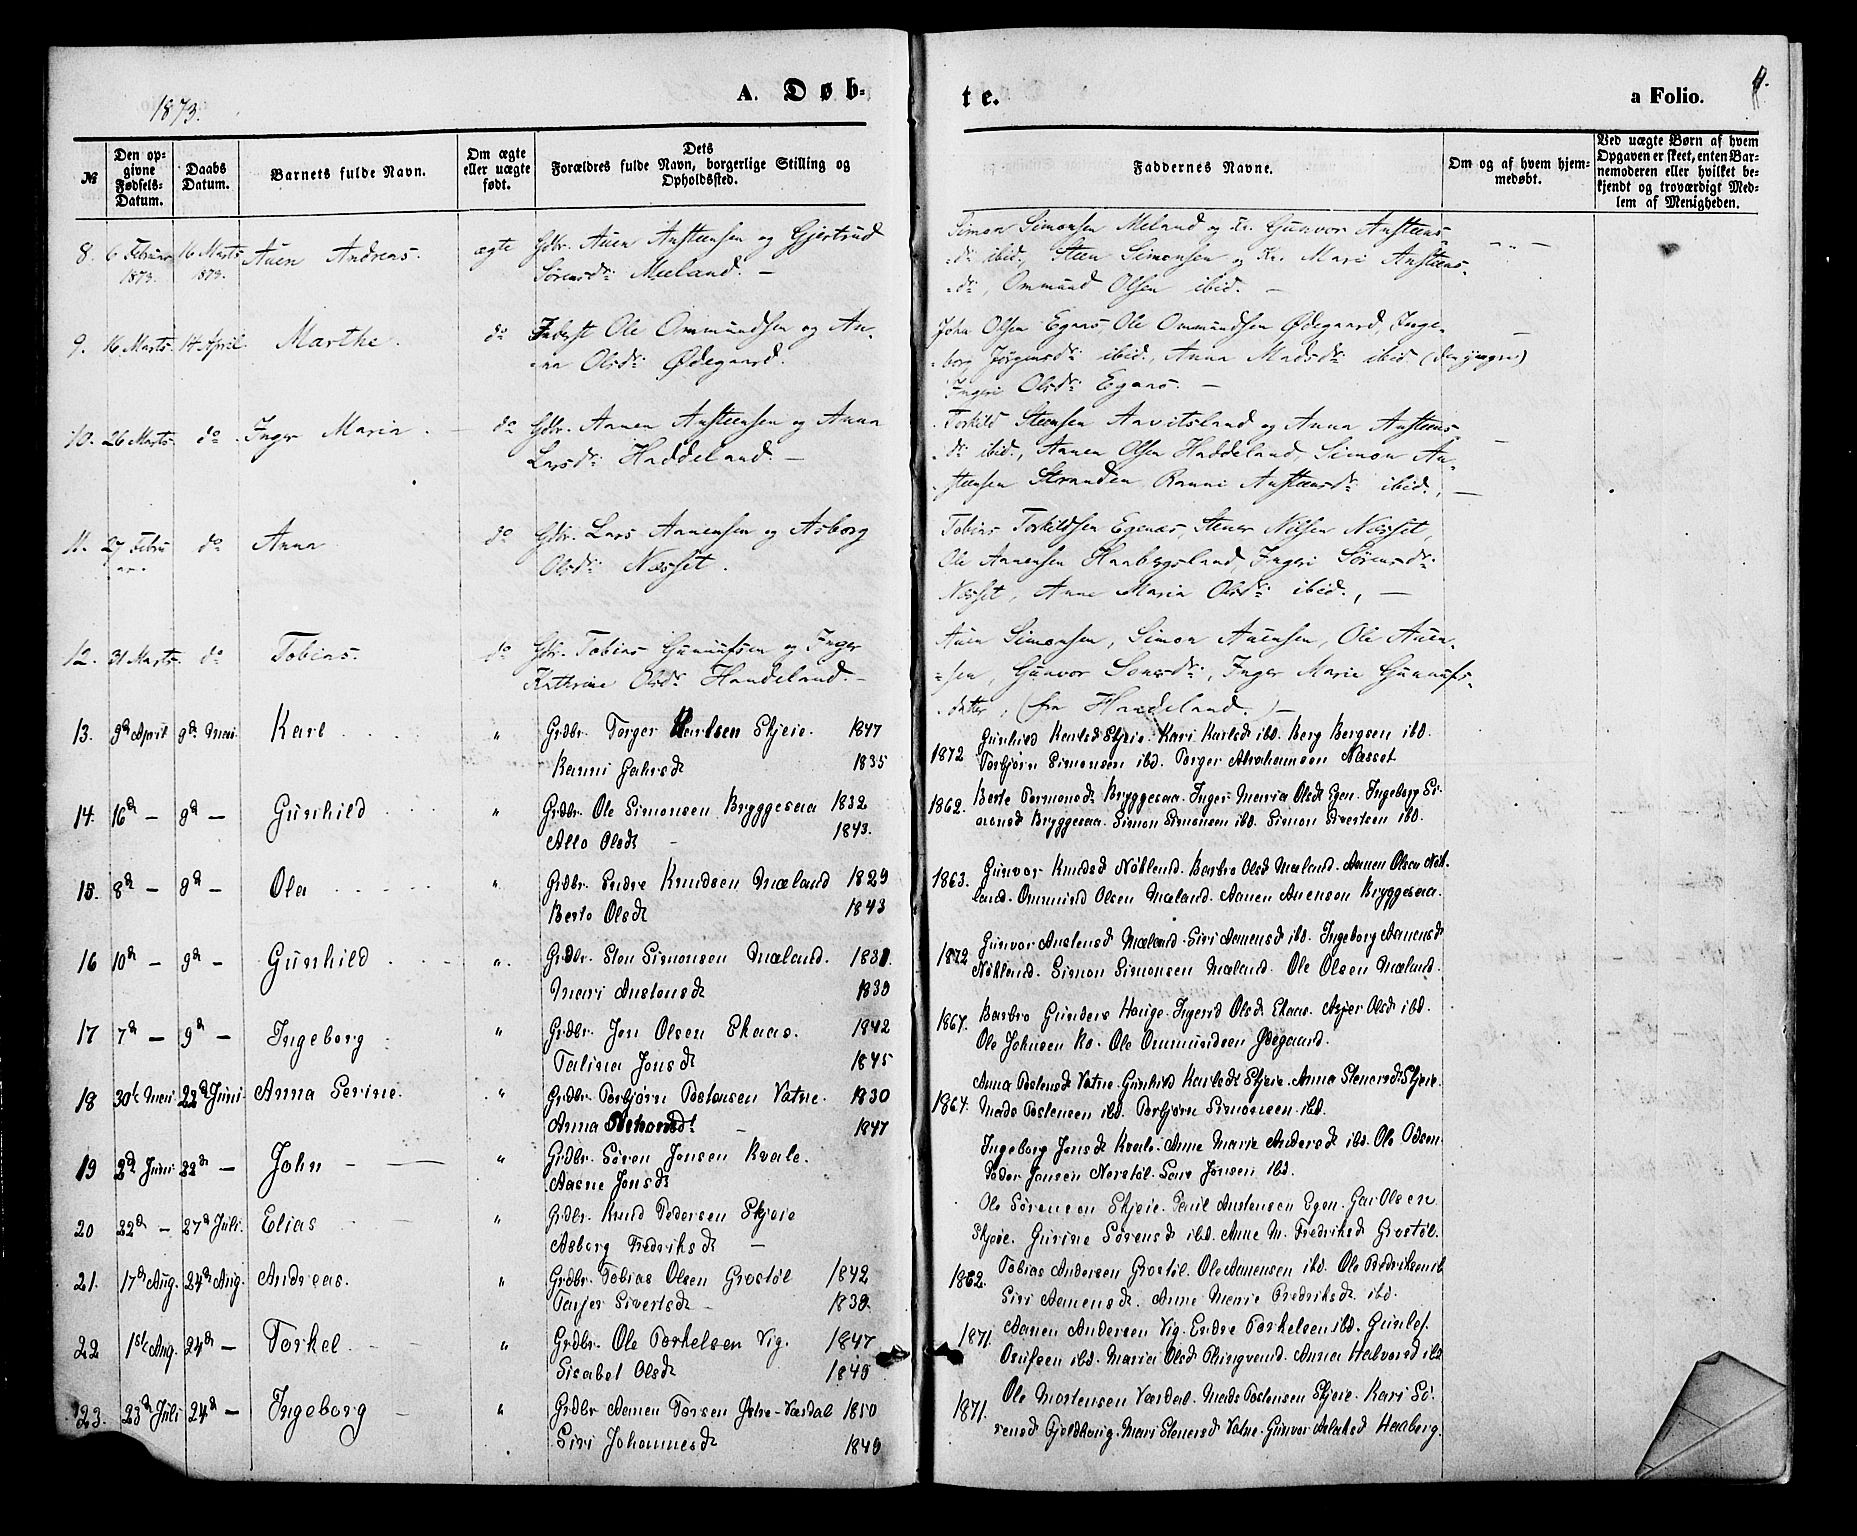 1873.
A. Døb-
te.
a Folio.
№
Den op-
givne
Fødsels-
Datum.
Daabs
Datum.
Barnets fulde Navn.
Om ægte
eller uægte
født.
Dets
Forældres fulde Navn, borgerlige Stilling og
Opholdssted.
Faddernes Navne.
Om og af hvem hjem-
medøbt.
Ved uægte Børn af hvem
Opgaven er skeet, enten Bar-
nemoderen eller hvilket be-
kjendt og troværdigt Med-
lem af Menigheden.
8. 6 Februar 1873. 16 Marts 1873. Auen Andreas. ægte Gdbr. Auen Ansteensen og Gjertrud
Sørensdr: Meeland. —
Simon Simonsen Meland og Gunvor Ansteens-
dr: ibid, Steen Simonsen og Mari Ansteens-
dr, Ommund Olsen ibid. —
9. 16 Marts 14 April Marthe. do Inderst Ole Ommundsen og An-
na Olsdr: Ødegaard.
John Olsen Egaas, Ole Ommundsen Ødegaard, Inge-
borg Jørgensdr: ibid., Anna Madsdr: ibid (den yngre)
Ingeri Olsdr: Egaas. —
10. 26 Marts do Inger Maria. do Gdbr. Aanen Ansteensen og Anna
Larsdr: Haddeland. —
Torkild Steensen Aavitsland og Anna Ansteens-
dr: ibid., Aanen Olsen Haddeland, Simon An-
steensen Stranden, Ranni Ansteensdr: ibid., —
11. 27 Febru do Anna do Gdbr. Lars Aanensen og Asborg
Olsdr: Næsset.
Tobias Torkildsen Egenæs, Stener Nilsen Næsset,
Ole Aanensen Haabegsland, Ingeri Sørensdr:
Næsset, Anne Maria Olsdr: ibid., —
12. 31 Marts do Tobias. do Gdbr. Tobias Gunulfsen og Inger
Kathrine Olsdr: Haadeland. —
Auen Simonsen, Simon Auensen, Ole Auen-
sen, Gunvor Lensdr:, Inger Marie Gunulfs-
datter, (fra Haadeland.) —
13. 9d April 9d Mai Karl " Grdbr. Torger Karlsen Skjeie. 1847
Ranni Gahrsdt 1835
1872 Gunhild Karlsd Skjeie. Kari Karlsd ibd. Berg Bergsen ibd.
Torbjørn Simonsen ibd. Torger Abrahamsen Næsset
14. 16d — 9d — Gunhild " Grdbr. Ole Simonsen Bryggesaa 1832
Allo Olsdt — 1843.
1862. Berte Tormonsdt Bryggesaa. Inger Maria Olsdt Egen. Ingeborg Sø-
rensd Bryggesaa. Simon Simonsen ibd. Simon Sivertsen ibd.
15. 8d — 9d — Ola " Grdbr. Endre Knudsen Mæland 1829
Berte Olsdt 1843
1863. Gunvor Knudsd Nökland. Barbro Olsd Mæland. Aanen Olsen Nök-
land. Ommund Olsen Mæland. Aanen Auenson Bryggesaa.
16 10d — 9d — Gunhild " Grdbr. Sten Simonsen Mæland. 1831.
Mari Anstensdt 1839
1872 Gunvor Anstensd Mæland. Siri Aanensd ibd. Ingeborg Aanensdt
Nökland. Simon Simonsen Mæland. Ole Olsen Mæland.
17 7d — 9d — Ingeborg " Grdbr. Jon Olsen Ekaas. 1842
Talina Jonsdt 1845
1867. Barbro Gunders Hauge. Ingerid Olsdt Ekaas. Asjer Olsdt ibd.
Ole Johnsen Ro. Ole Ommundsen Ødegaard.
18 30te Mai 22d Juni Anna Serine. " Grdbr. Torbjørn Tostensen Vatne. 1830
Anna — 1847
1864. Anna Tostensdt Vatne. Gunhild Karlsdt Skjeie. Anna Stenersdt Skjeie.
Mads Tostensen ibd. Torbjørn Simonsen ibd.
19 2d Juni 22d — John — " Grdbr. Søren Jensen Kvale.
Aasne Jonsdt
Ingeborg Jonsdt Kvale. Anne Marie Andersdt ibd. Ole Odsen.
Peder Jensen Nerstøl. Lars Jensen ibd.
20 22d — 27d Juli. Elias " Grdbr. Knud Pedersen Skjeie
Asborg Fredriksdt —
Ole Sørensen Skjeie. Emil Anstensen Egen. Gar Olsen
Skjeie. Gurine Sørensdt ibd. Anne M. Fredriksdt Grostøl.
21. 17d Aug. 24d Aug. Andreas. " Grdbr. Tobias Olsen Grostøl 1842
Tarjer Sivertsdt — 1839
1862. Tobias Andersen Grostøl. Ole Aanensen ibd. Ole Fredriksen ib
Siri Aanensdt. Anne Marie Fredriksdt ibd.
22 1ste Aug. 24d — Torkel. " Grdbr. Ole Torkelsen Vig. 1847
Lisabet Olsdt 1849
1871. Aanen Andersen Vig. Endre Torkelsen ibd. Gunlef.
Osufsen ibd. Maria Olsdt Thingvend. Anna Halvorsd ibd
23. 23d Juli 24d — Ingeborg — " Grdbr Aanen Torsen Ytre-Værdal 1850
Siri Johannesdt 1849
1871. Ole Mortensen Værdal. Mads Tostensen Skjeie. Kari Sø-
rensd Fjeldhaug. Mari Stenersd Vatne. Gunvor Aslaksd Haaberg.